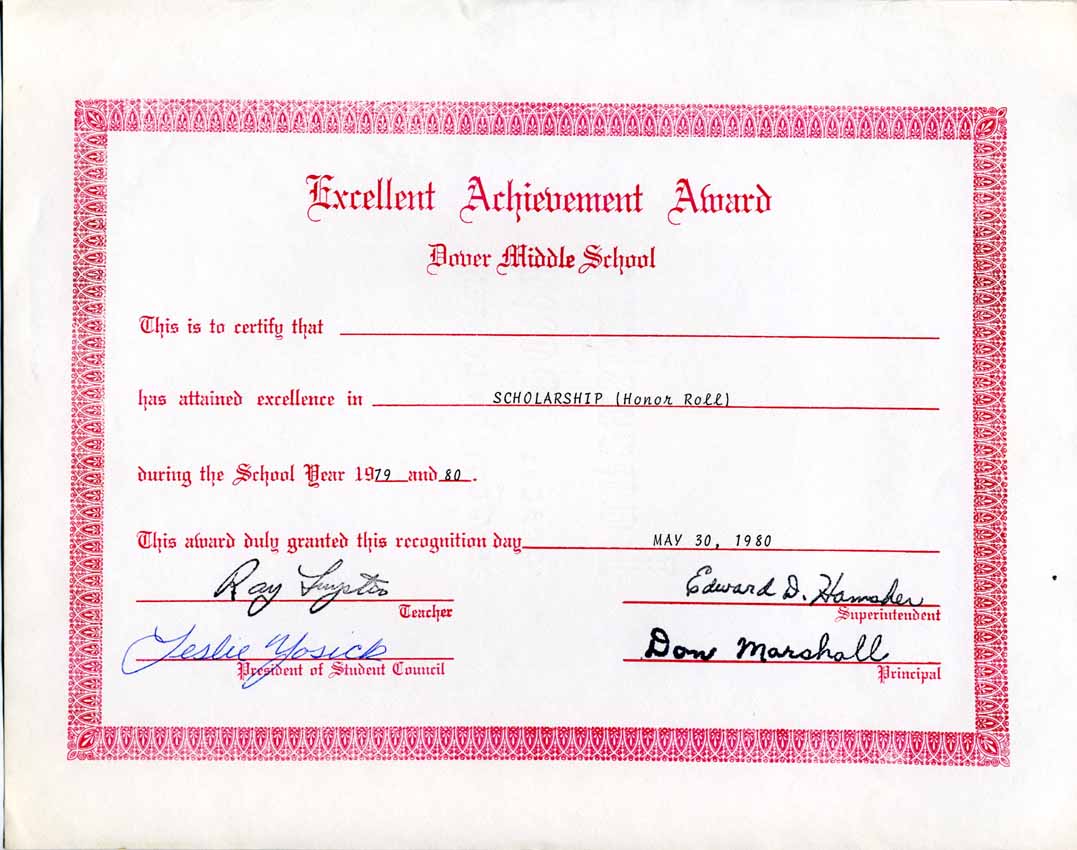 Excellent Achievement Award
Dover Middle School
This is to certify that
has attained excellence in SCHOLARSHIP (Honor Roll)
during the School Year 1979 and 80.
This award duly granted this recognition day MAY 30, 1980
Ray Edward D. Hamsher
Teacher Superintendent
Leslie Yosick Don Marshall
President of Student Council Principal